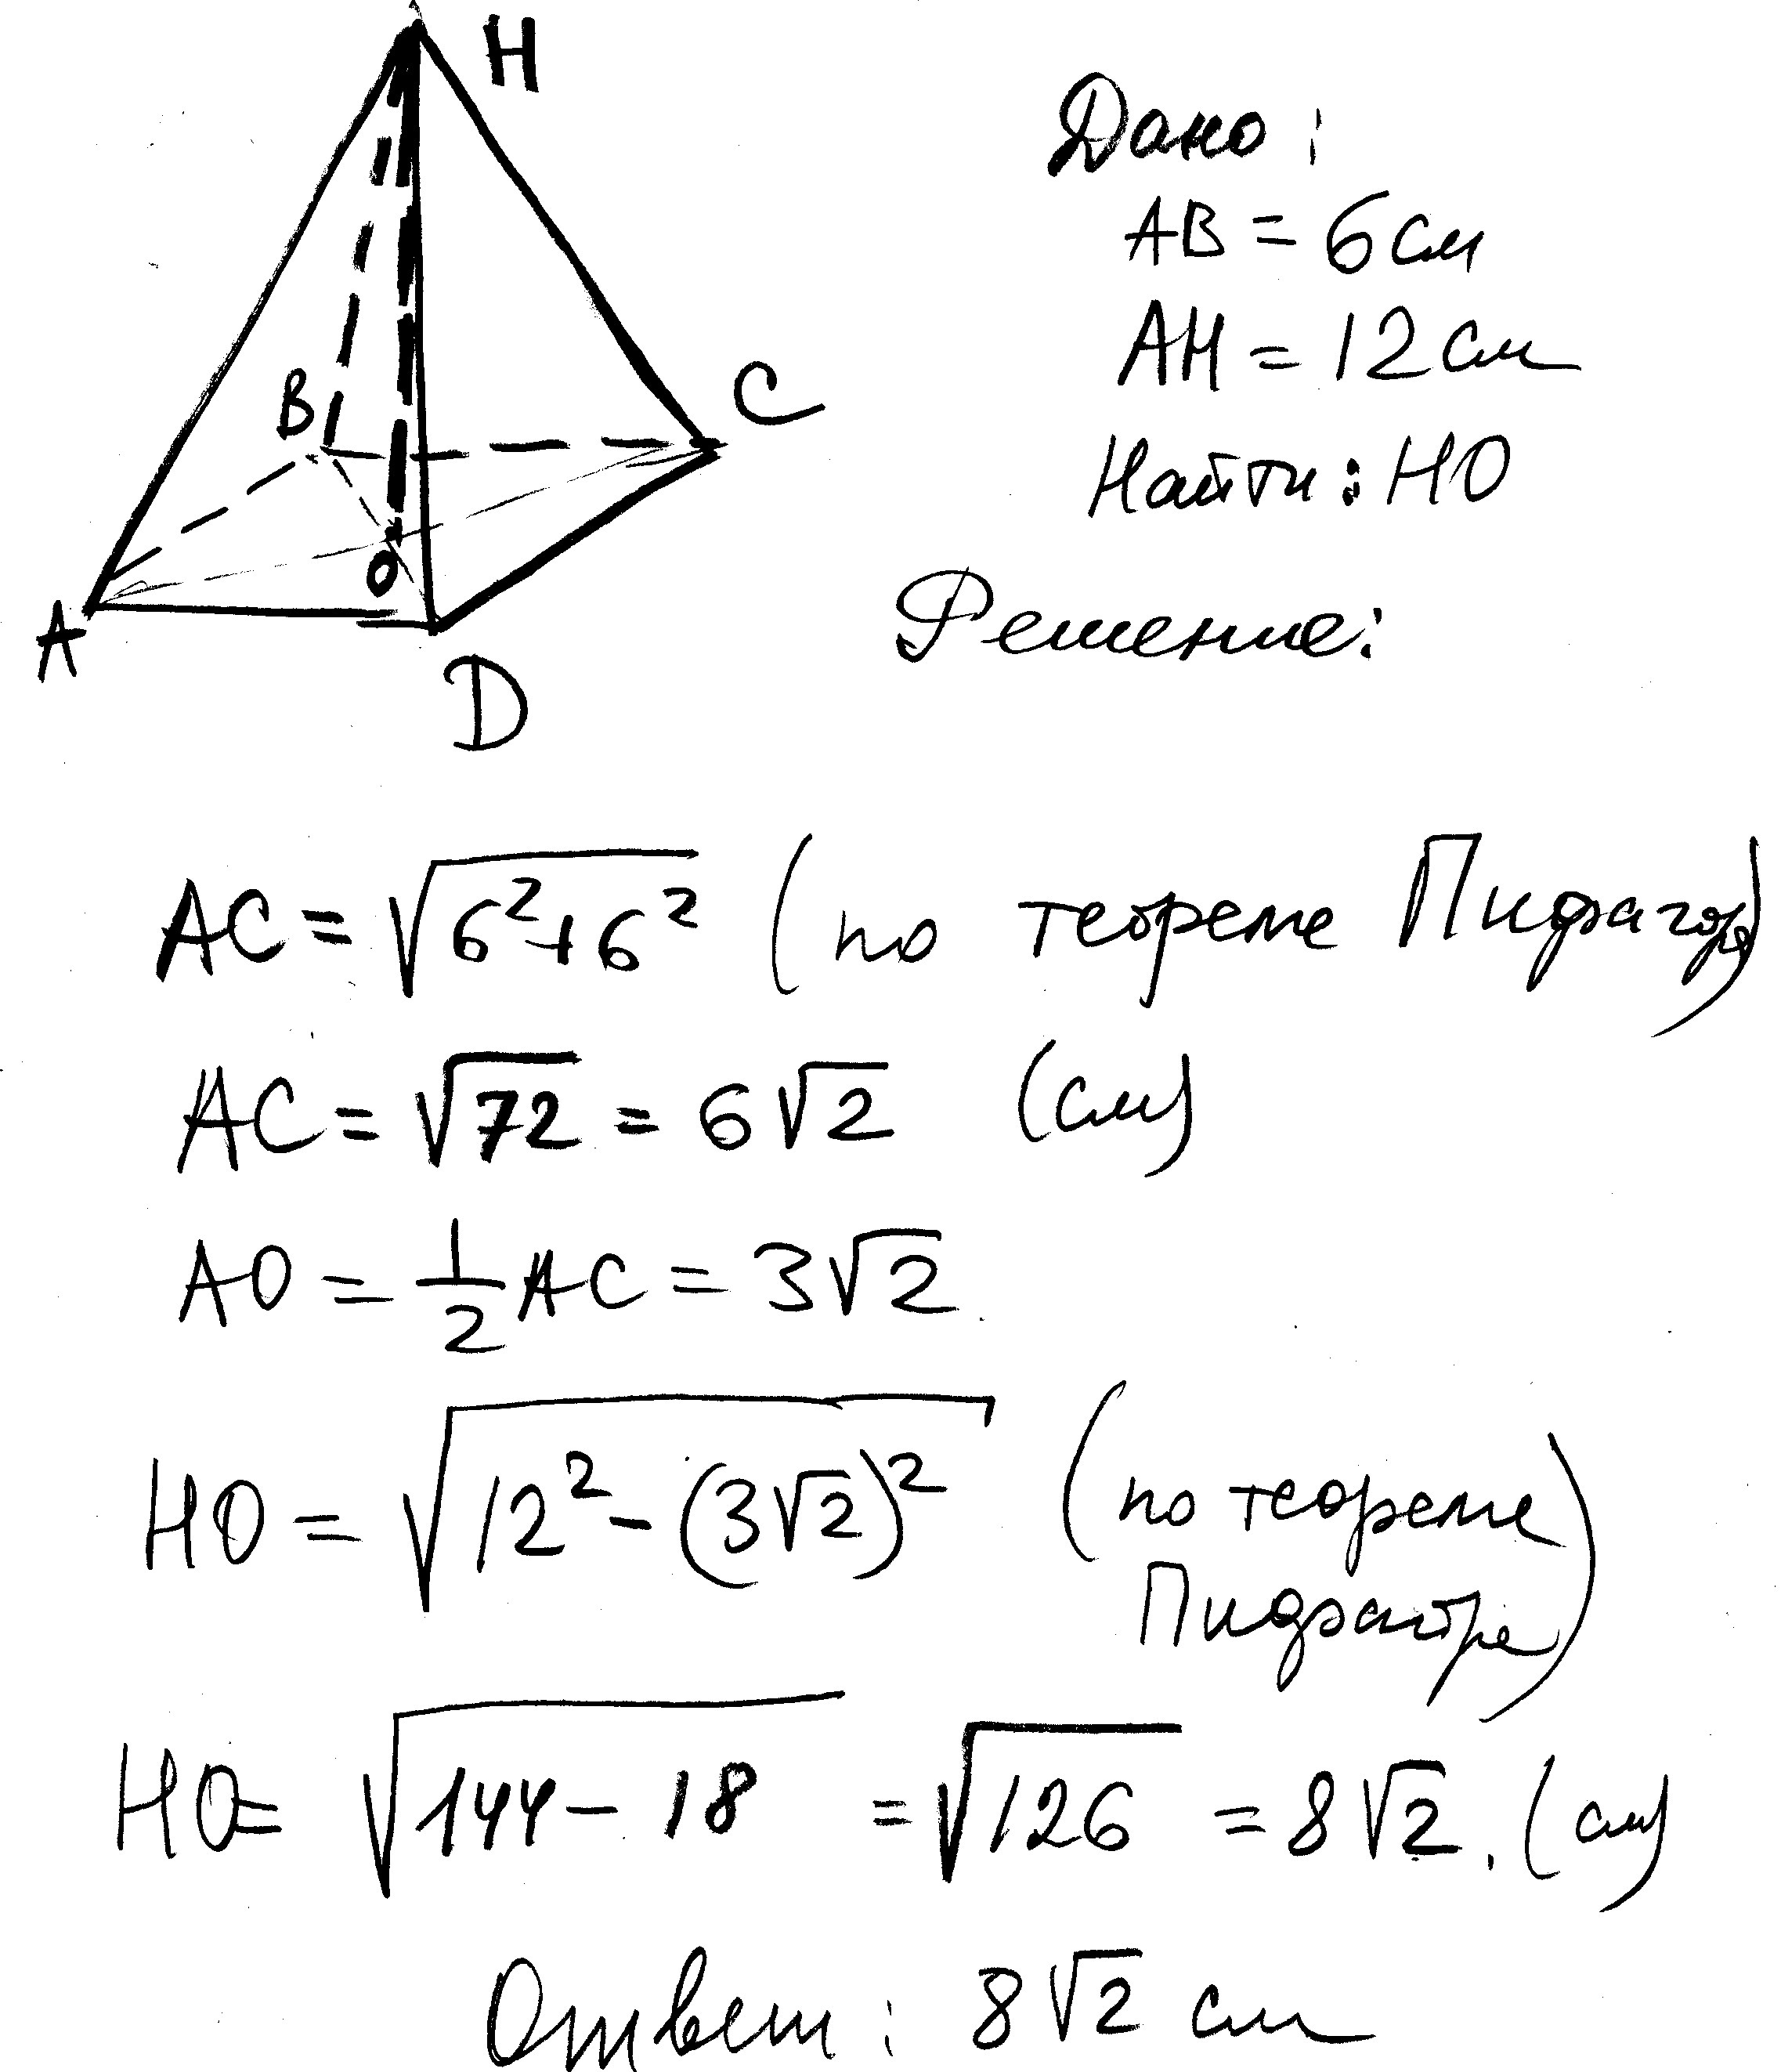 H
B
C
O
A
D
Дано:
AB = 6 см
AH = 12 см
Найти: HO
Решение:
AC = √(6²+6²) (по теореме Пифагора)
AC = √72 = 6√2 (см)
AO = 1/2 AC = 3√2
HO = √(12² - (3√2)²) (по теореме
Пифагора)
HO = √(144 - 18) = √126 = 8√2. (см)
Ответ: 8√2 см